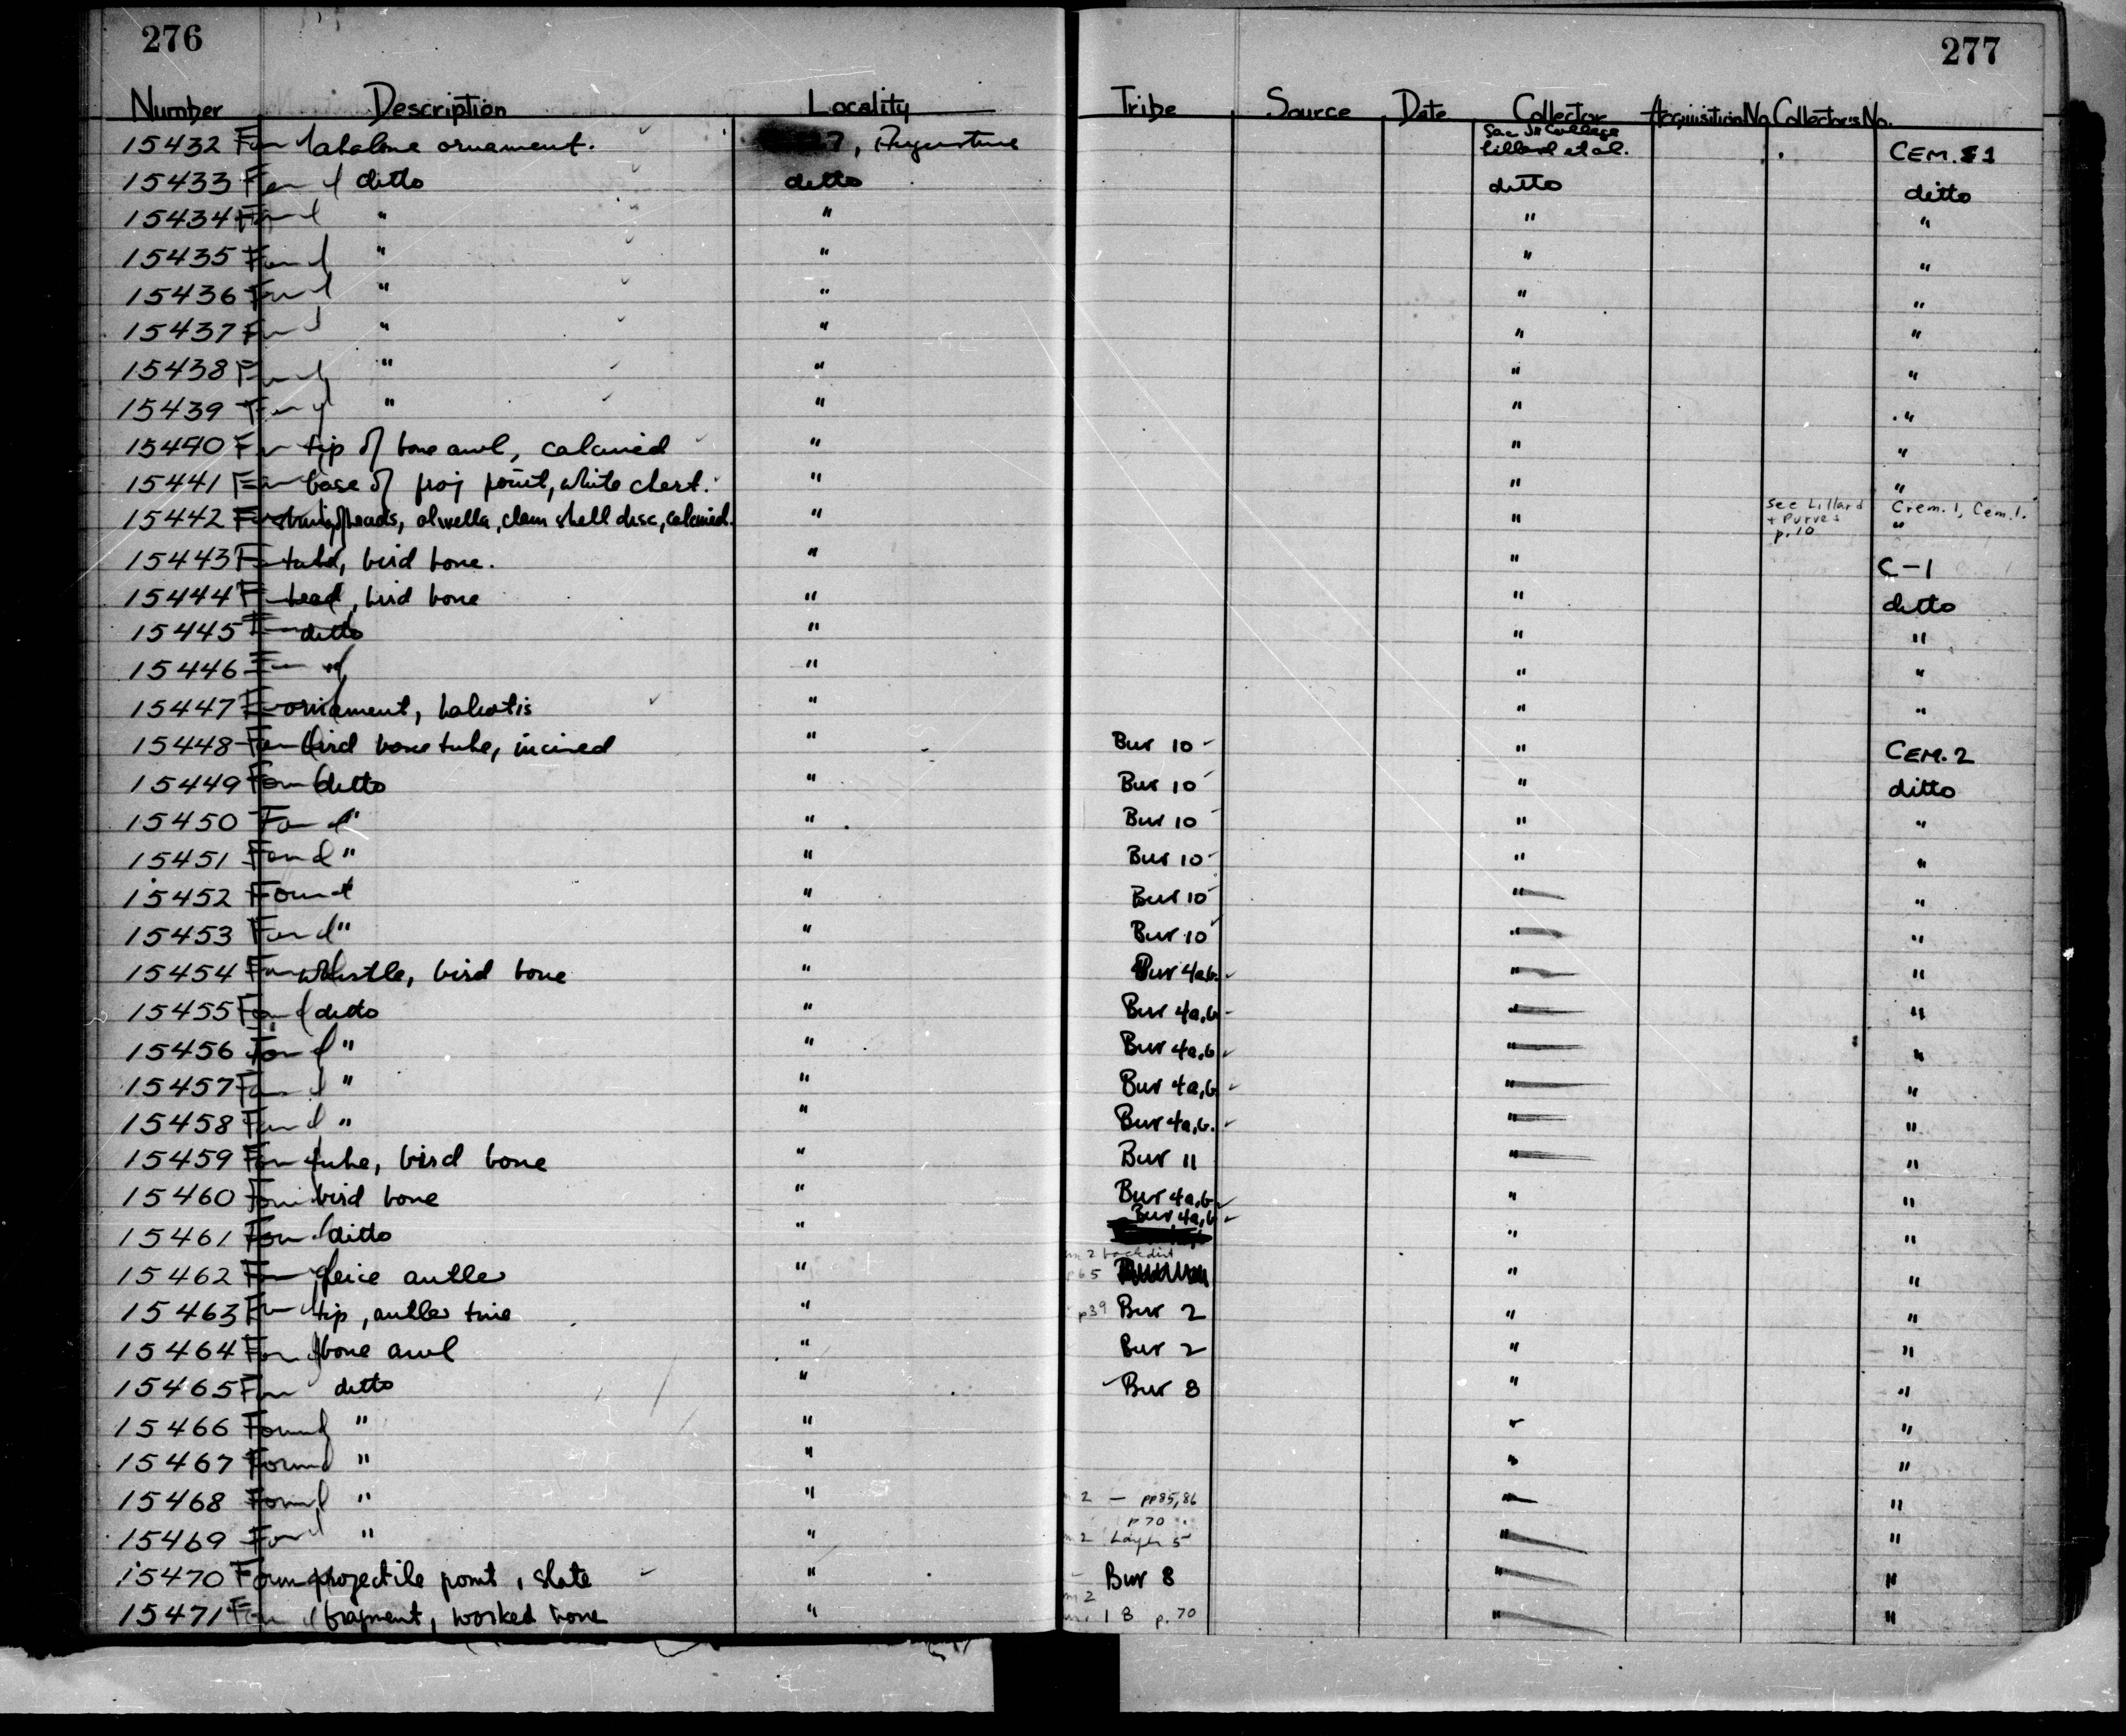 276
277
Number Description Locality Tribe Source Date Collector Acquisition No. Collector's No.
15432 Found abalone ornament. 7, Augustine Sac Jr College Lillard et al. CEM. 1
15433 Found ditto ditto ditto ditto
15434 Found " " " "
15435 Found " " " "
15436 Found " " " "
15437 Found " " " "
15438 Found " " " "
15439 Found " " " "
15440 tip of bone awl, calcined " " "
15441 base of proj point, white chert. " " "
15442 beads, olivella, clam shell disc, calcined. " " see Lillard + Purves p.10 Crem. 1, Cem. 1. "
15443 tube, bird bone. " " C-1
15444 bead, bird bone " " ditto
15445 ditto " " "
15446 " " " "
15447 ornament, haliotis " " "
15448 Found bird bone tube, incised " Bur 10 " CEM. 2
15449 Found ditto " Bur 10 " ditto
15450 Found " " Bur 10 " "
15451 Found " " Bur 10 " "
15452 Found " Bur 10 " "
15453 Found " " Bur 10 " "
15454 Found whistle, bird bone " Bur 4a,b. " "
15455 Found ditto " Bur 4a,b " "
15456 Found " " Bur 4a,b " "
15457 Found " " Bur 4a,b " "
15458 Found " " Bur 4a,b. " "
15459 Found tube, bird bone " Bur 11 " "
15460 Found bird bone " Bur 4a,b " "
15461 Found ditto " Bur 4a,b " "
15462 Found antler " 2 backdirt p65 " "
15463 Found tip, antler tine " p39 Bur 2 " "
15464 Found bone awl " Bur 2 " "
15465 Found ditto " Bur 8 " "
15466 Found " " " "
15467 Found " " " "
15468 Found " " 2 — pp85,86 " "
15469 Found " " p70 2 Layer 5 " "
15470 Found projectile point, slate " Bur 8 " "
15471 Found fragment, worked bone " 2 1 8 p. 70 " "